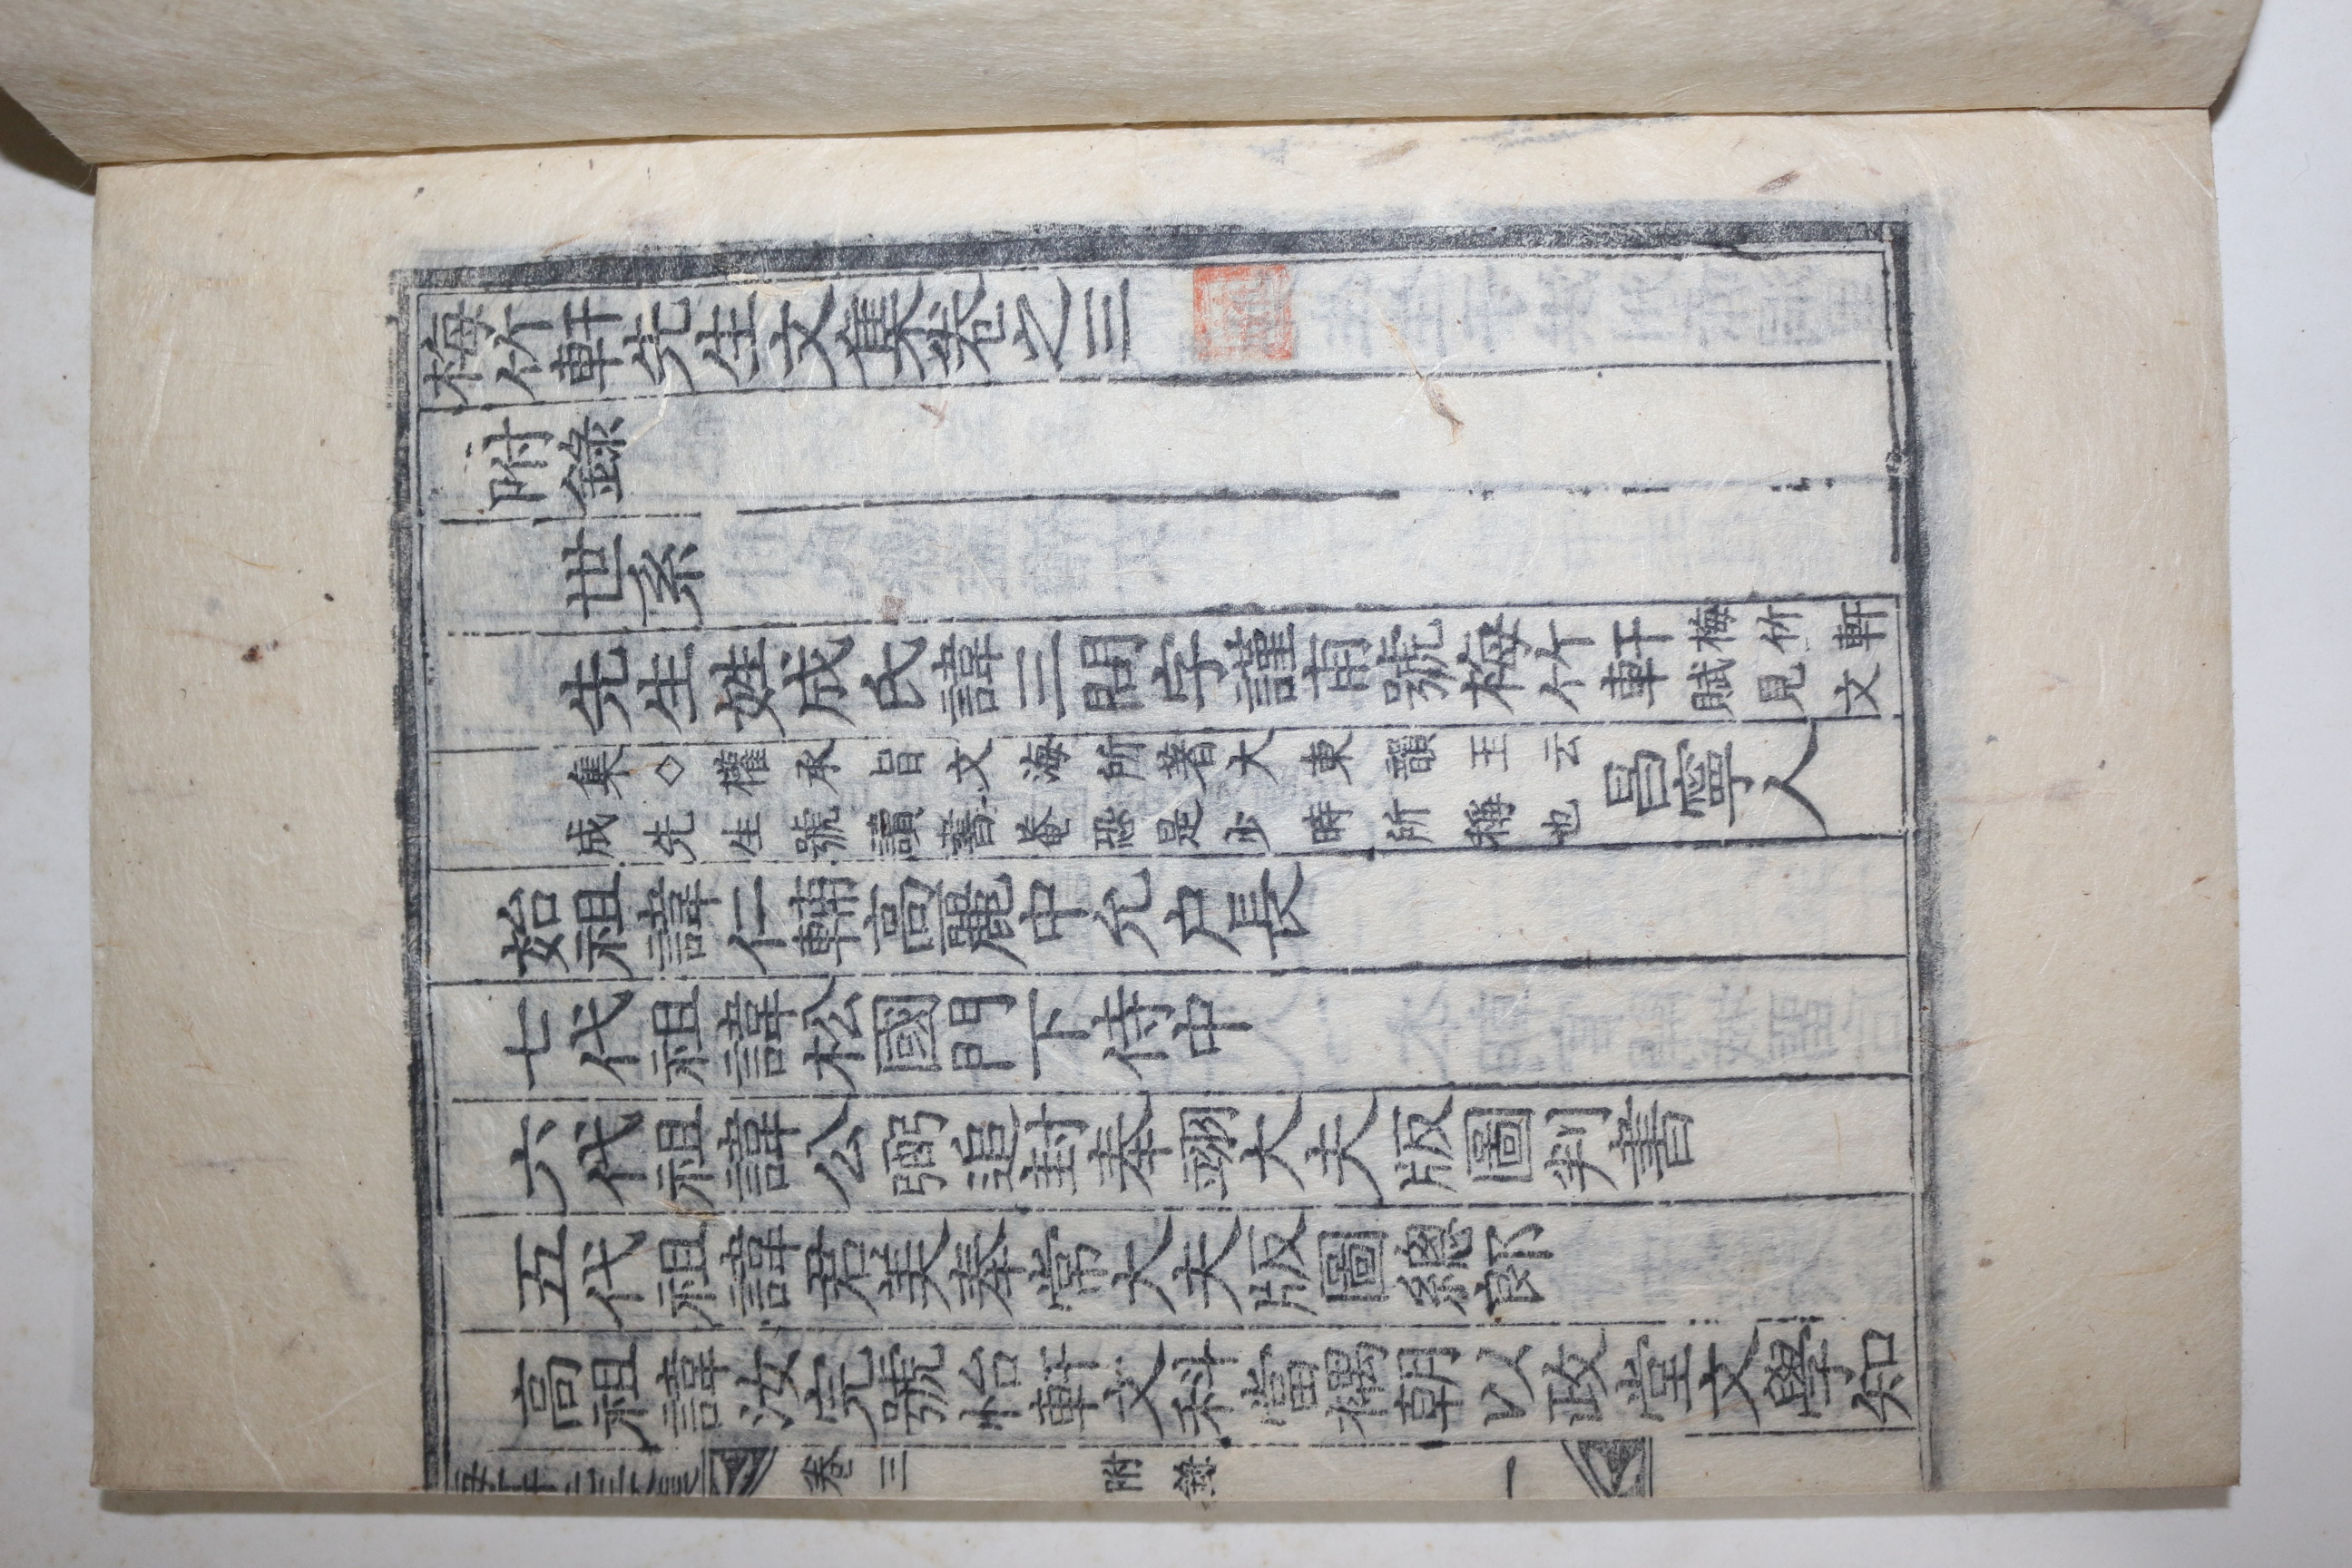 梅竹軒先生文集卷之三
附錄
世系
先生姓成氏諱三問字謹甫號梅竹軒梅竹軒賦見文
集◇權承旨文海所著大東韻玉云成先生號讀書庵恐是少時所稱也昌寧人
始祖諱仁輔高麗中允戶長
七代祖諱松國門下侍中
六代祖諱公弼追封奉翊大夫版圖判書
五代祖諱君美奉常大夫版圖總郞
高祖諱汝完號怡軒文科當禑朝以政堂文學知
卷三 附錄 一